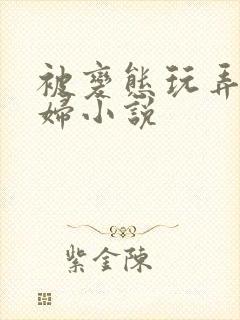 被变態玩弄
婦小説
紫金陳